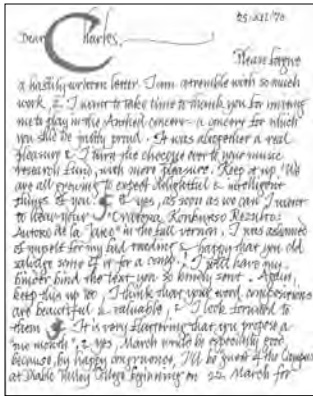 25·XII/70
Dear Charles,
Please forgive
a hastily written letter. I am atremble with so much
work, & I want to take time to thank you for inviting
me to play in the concert - a concert for which
you shd be justly proud. It was altogether a real
pleasure & I turn the cheque over to your music
research fund, with more pleasure. Keep it up. We
are all growing to expect delightful & intelligent
things of you. & yes, as soon as we can I want
to hear your
de la "Voco" in the full version, I was ashamed
of myself for my bad reading & happy that you cld
salvage some of it for a comp. I still have my
binder bind the text you so kindly sent. Again,
keep this up too, I think that your word compositions
are beautiful & valuable, & I look forward to
them. It is very flattering that you propose a
month" & yes, March would be especially good,
because, by happy congruence, I'll be guest of the
at Diablo Valley College beginning on 22 March for